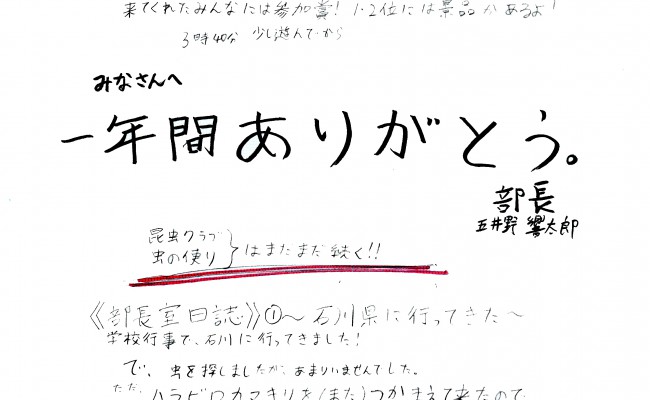 来てくれたみんなには参加賞！1・2位には景品があるよ！
3時40分 少し遊んでから
みなさんへ
一年間ありがとう。
部長
五井野 響太郎
昆虫クラブ
虫の便り
はまだまだ続く!!
《部長室日誌》①〜石川県に行ってきた〜
学校行事で、石川に行ってきました！
で、虫を探しましたが、あまりいませんでした。
ただ、ハラビロカマキリを(また)つかまえて来たので